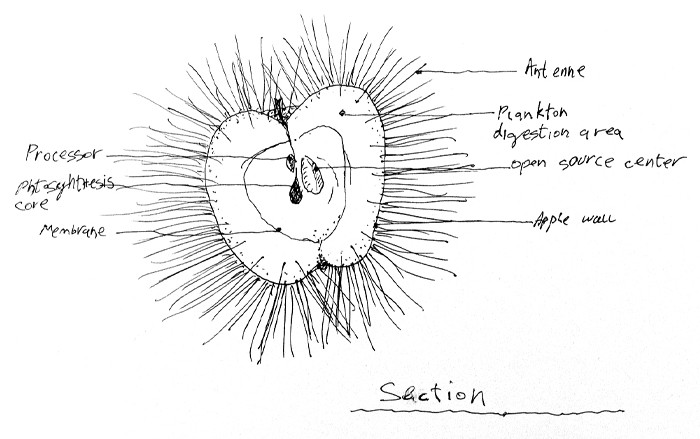 Antenne
Plankton
digestion area
Processor
open source center
Phtosyhthesis
core
Membrane
Apple wall
Section